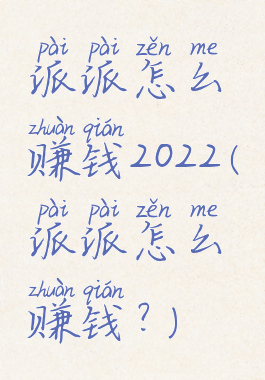 pài pài zěn me
派派怎么
zhuàn qián
赚钱2022(
pài pài zěn me
派派怎么
zhuàn qián
赚钱？)